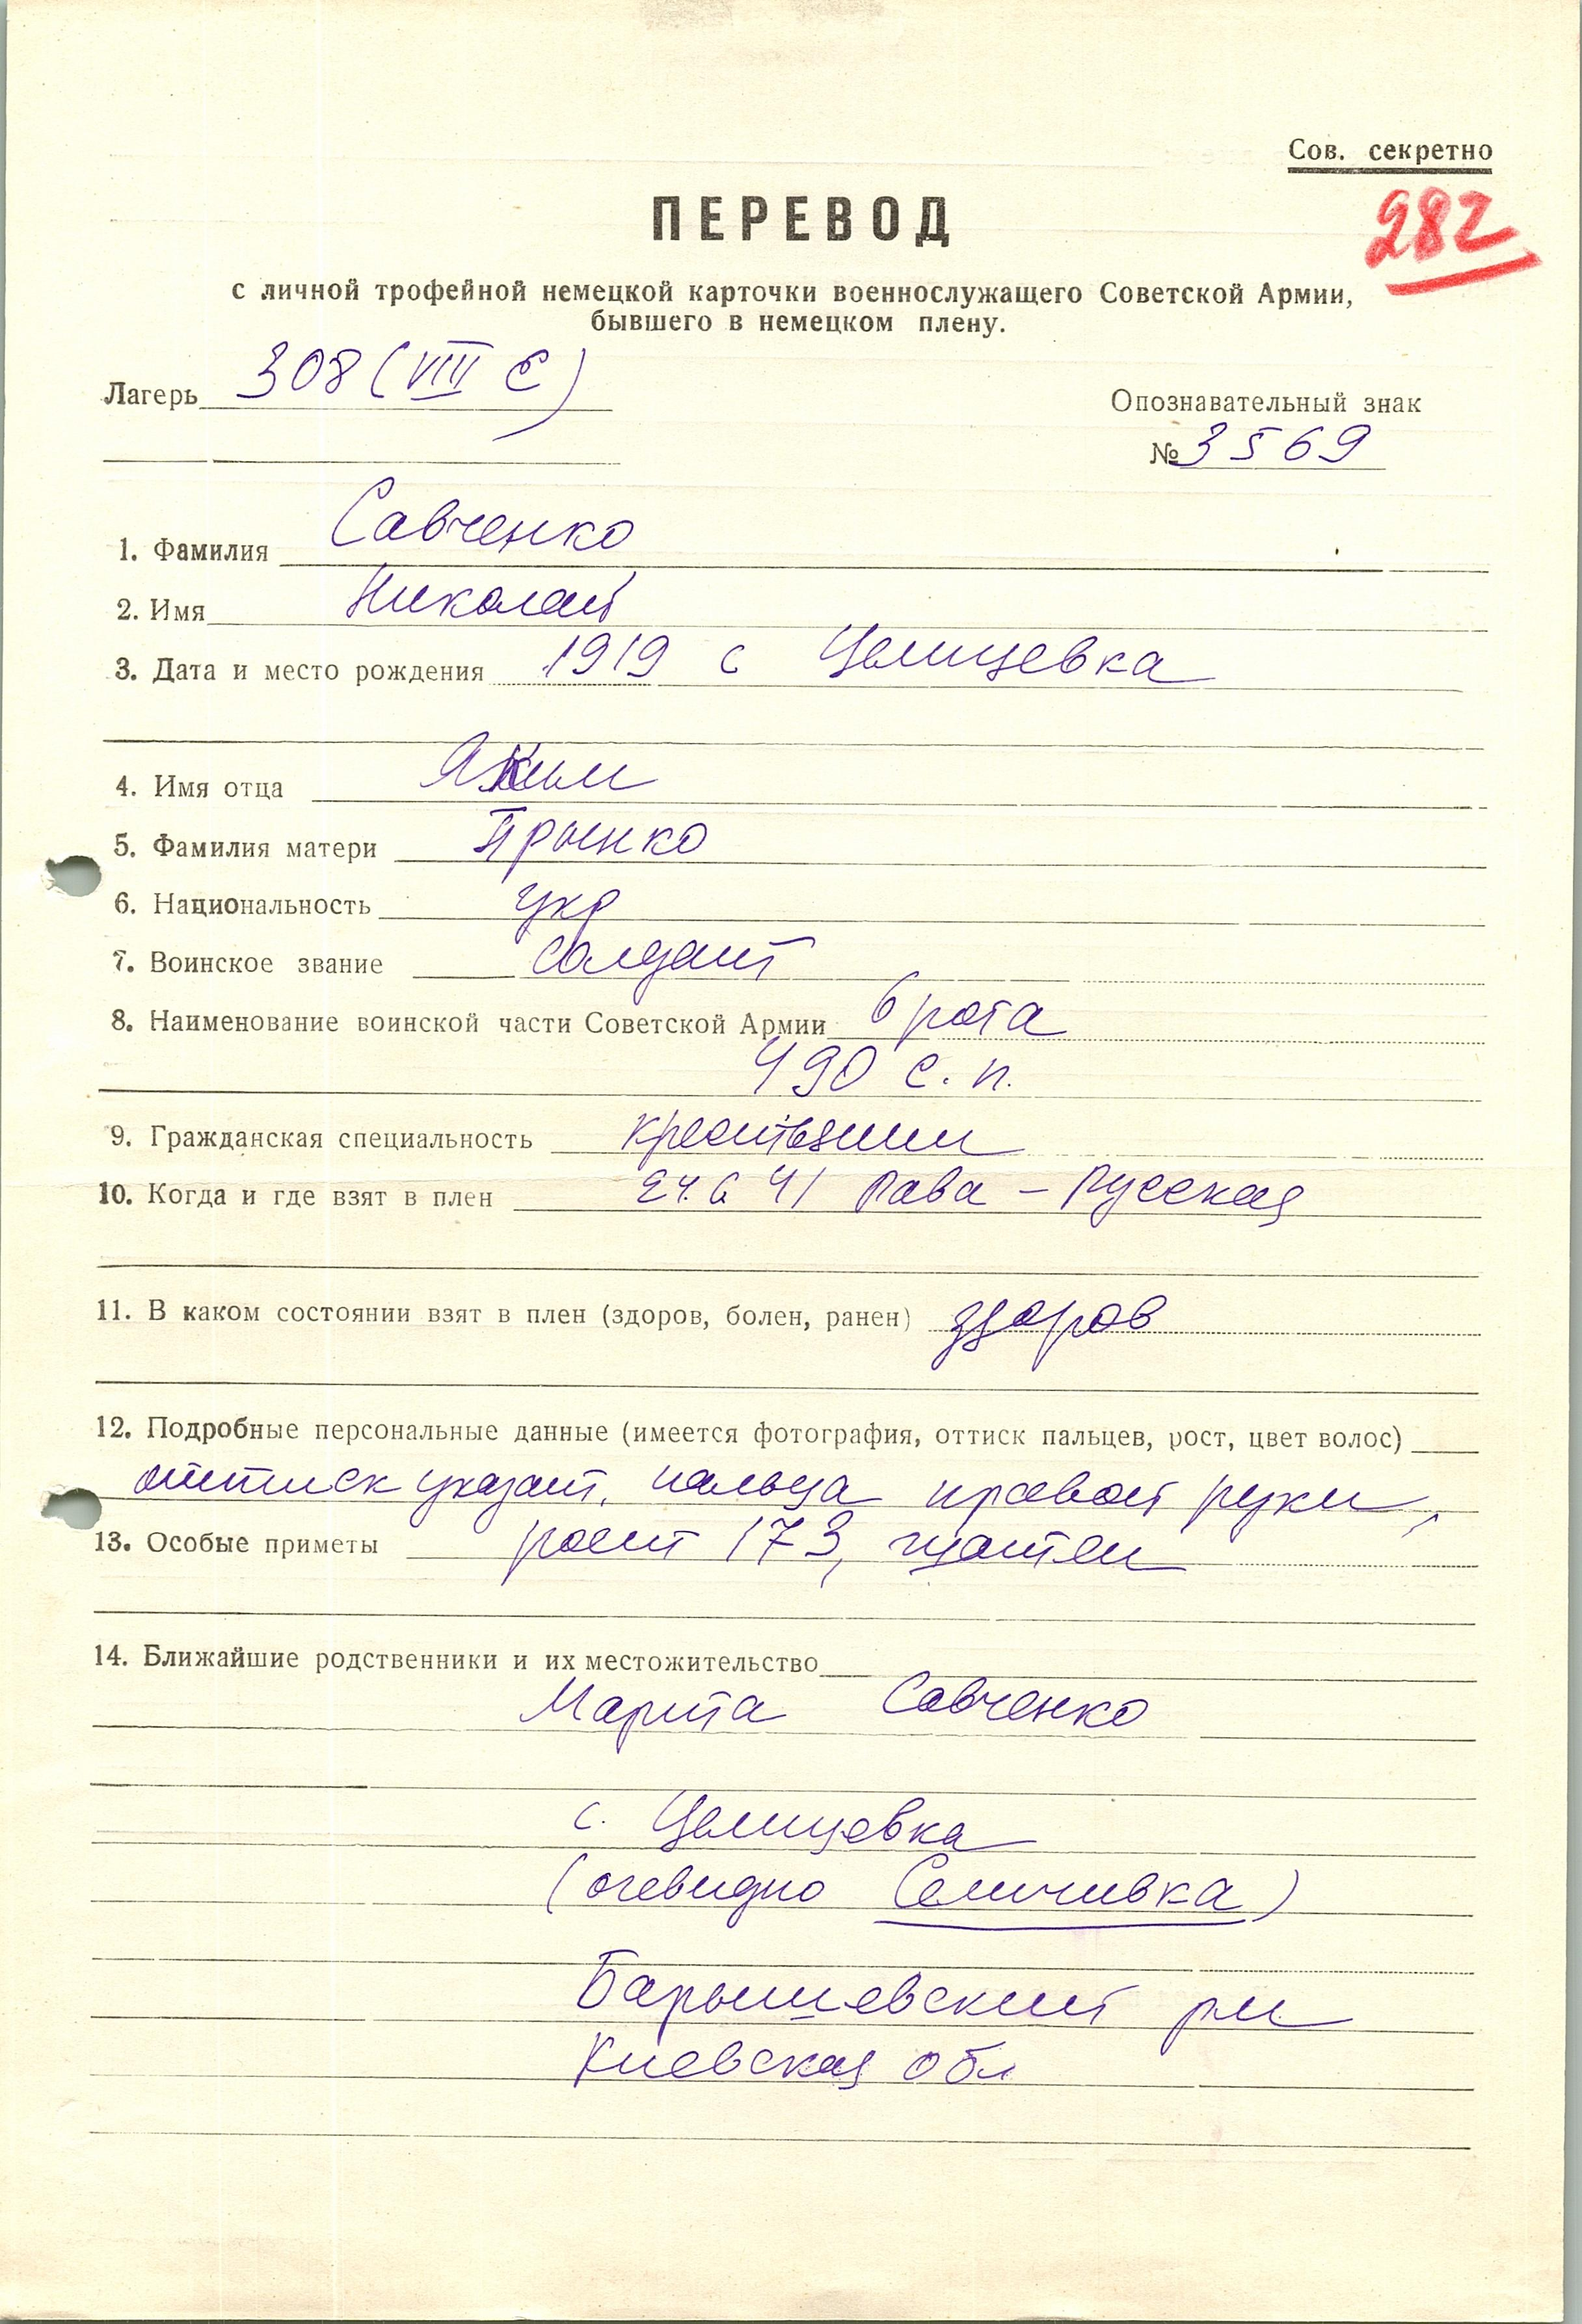 Сов. секретно
282
ПЕРЕВОД
с личной трофейной немецкой карточки военнослужащего Советской Армии,
бывшего в немецком плену.
Лагерь 308 (VIII E)
Опознавательный знак
№ 3569
1. Фамилия Савченко
2. Имя Николай
3. Дата и место рождения 1919 с Целицевка
4. Имя отца Яким
5. Фамилия матери
6. Национальность укр
7. Воинское звание солдат
8. Наименование воинской части Советской Армии 6 рота
490 с. п.
9. Гражданская специальность крестьянин
10. Когда и где взят в плен 24.6 41 Рава - Русская
11. В каком состоянии взят в плен (здоров, болен, ранен) здоров
12. Подробные персональные данные (имеется фотография, оттиск пальцев, рост, цвет волос)
оттиск указат. пальца правой руки,
13. Особые приметы рост 173, шатен
14. Ближайшие родственники и их местожительство
Савченко
с. Целицевка
(очевидно Селичивка)
Барышевский рн
Киевская обл